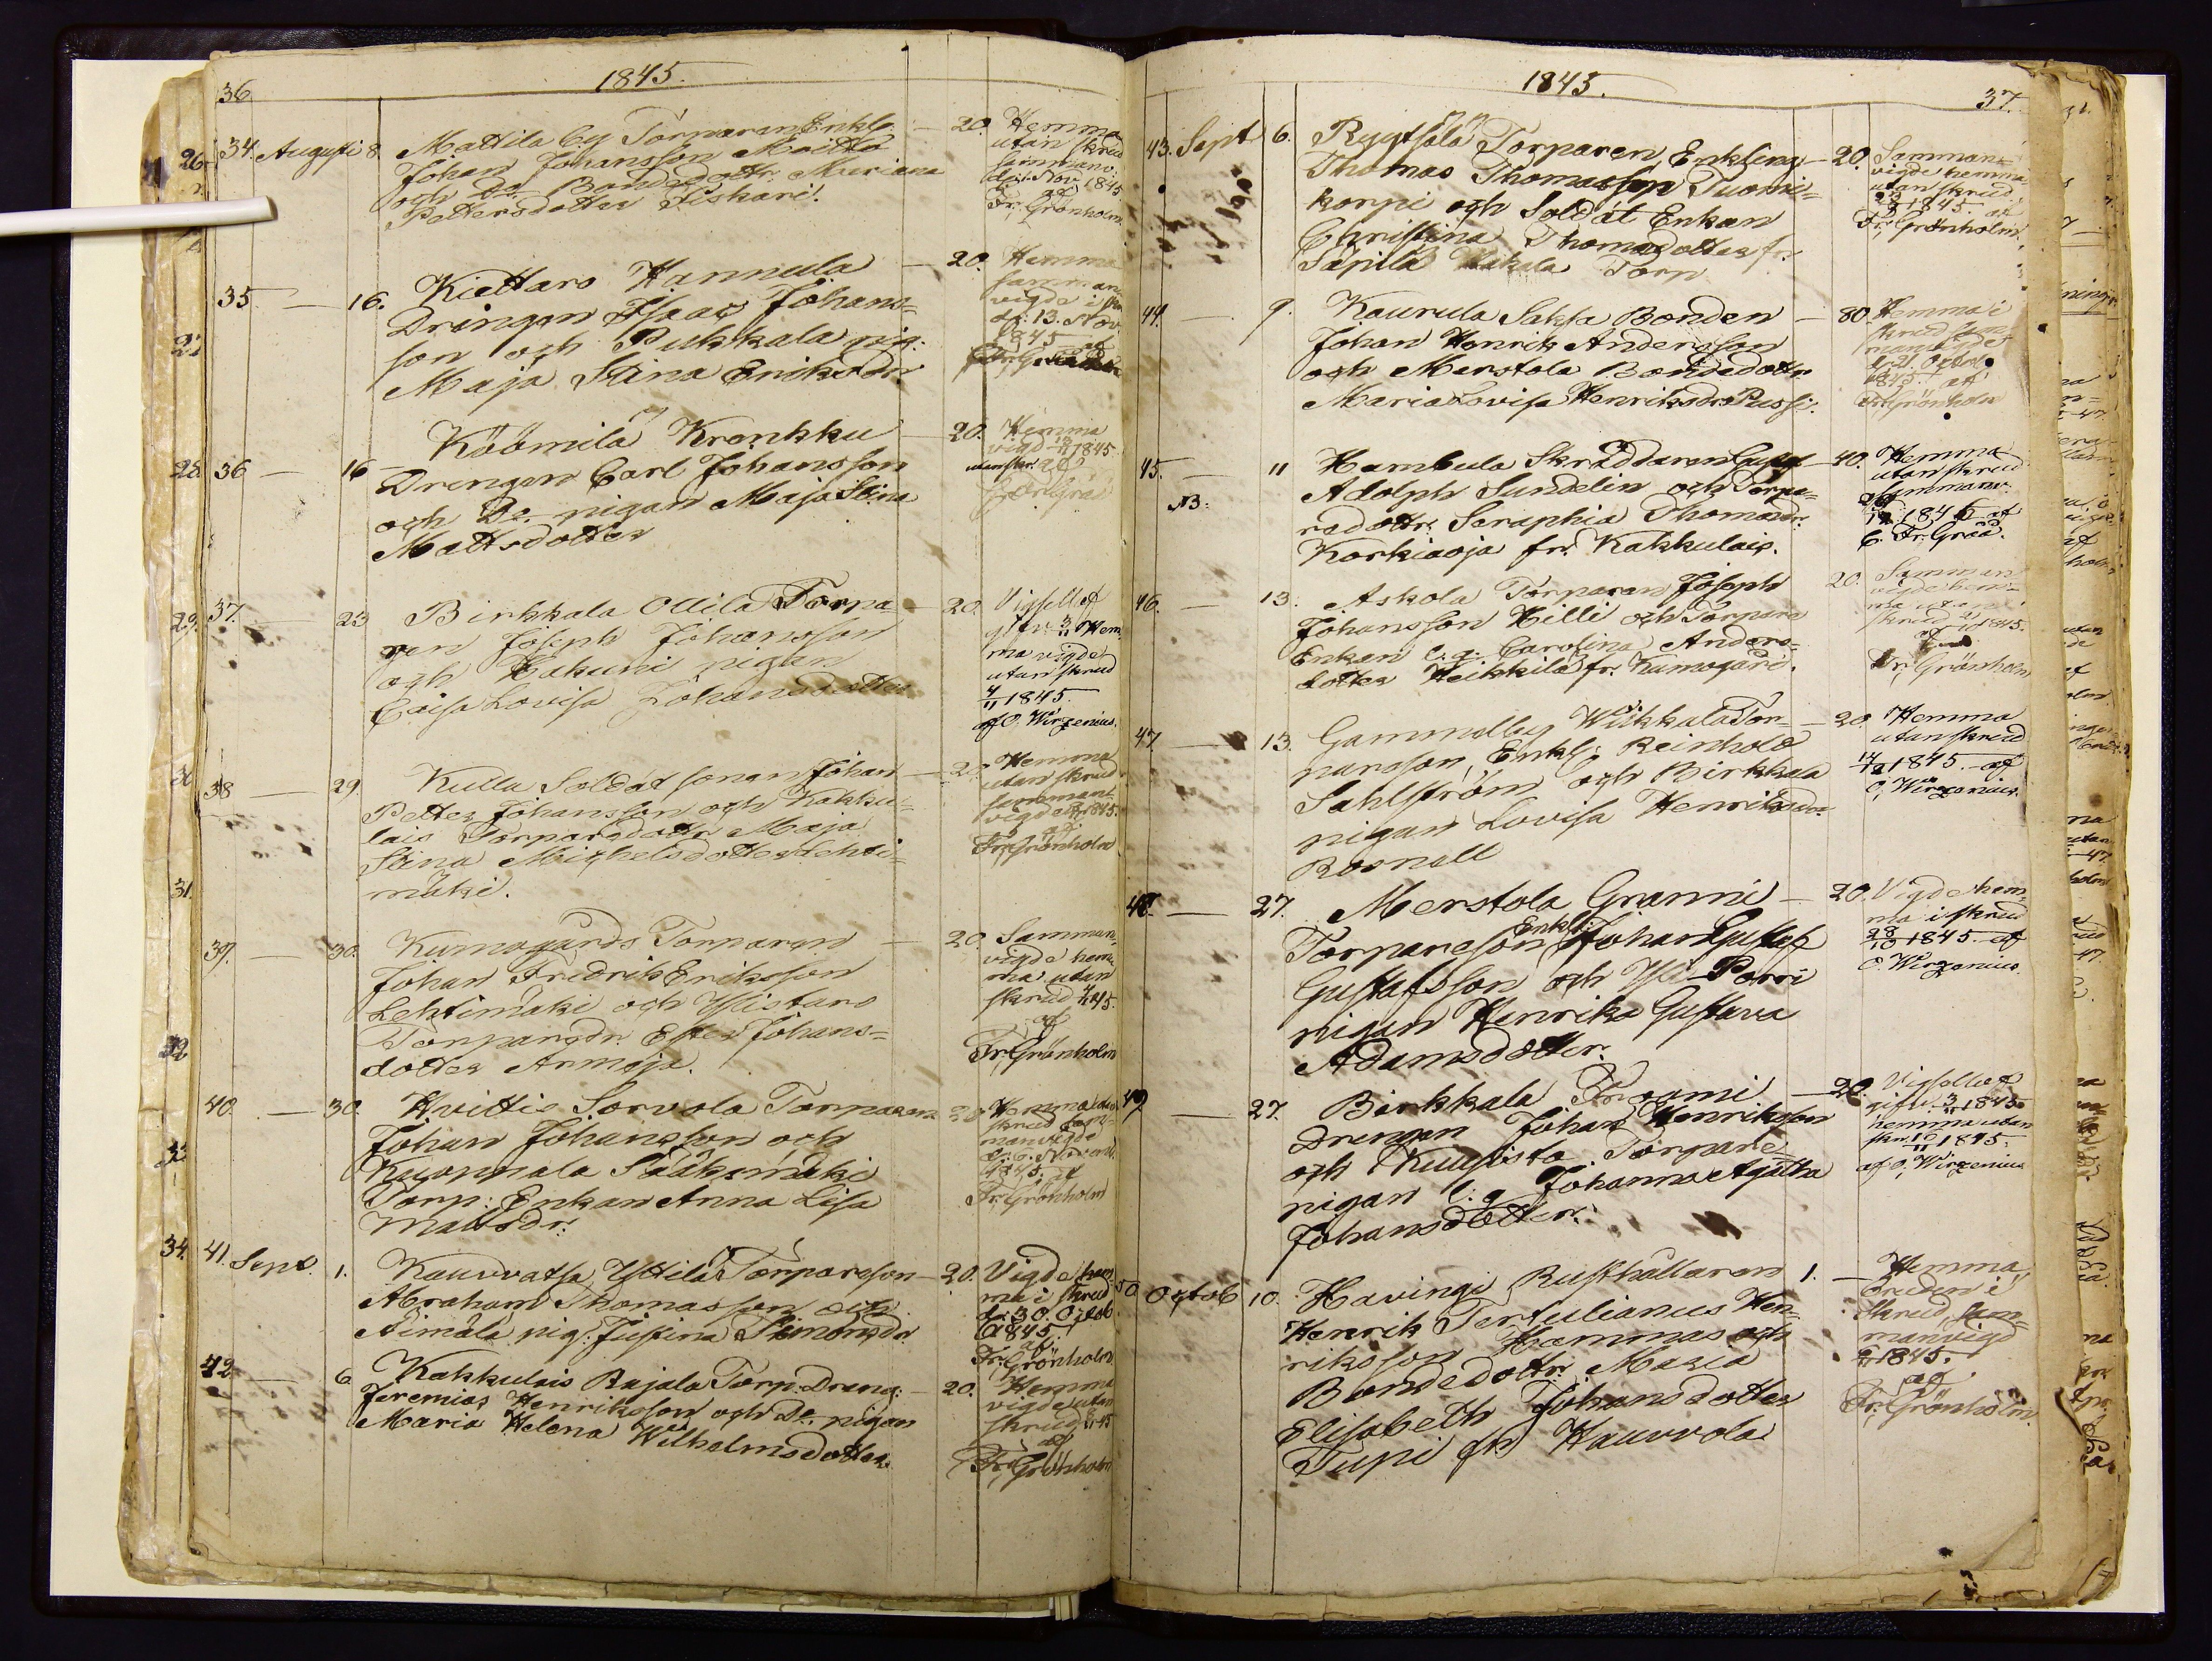 36
1845.
34. Augusti 8. Mattila by Torparen Enkl.
Johan Johansson
och Do Bondedottr. Mariana
Pettersdotter Piskari.
20. Hemma
utan skrud
sammanv.
Nov. 1845
af
Fr. Grönholm
35 — 16. Kiettare Hannula
Drängen Isaac Johans-
son och Pukkala pig:
Maja Stina Eriksdr.
20. Hemma
samman
vigde i
d. 13. Nov.
1845 af
36 — 16 Köömilä Krankku
Drengen Carl Johansson
och Do. pigan Maja Stina
Mattsdotter
20. Hemma
vigd 1845
af
37. — 23 Birkkala Ollila Torpa
ren Joseph Johansson
och Kakuni pigan
Caisa Lovisa Johansdotter
20. Vigsell af
gifv. 3/11 Hem
ma vigde
utan skrud
4/11 1845.
af O. Wirzenius.
38 — 29 Kulla Soldat sonen Johan
Petter Johansson och Kakku-
lais Torparedottr. Maja
Stina Michelsdotter Lehti-
mäki.
20. Hemma
utan skrud
samman-
vigde 1845.
af
Fr. Grönholm
39. — 30. Kumogårds Torparen
Johan Fredrik Eriksson
Lehtimäki och Ylistaro
Torparedr. Ester Johans-
dotter
20. Samman-
vigde hem-
ma utan
skrud 45.
af
Fr. Grönholm
40. — 30. Hvittis Sorvola Torparen
Johan Johansson och
Kuoppala Sääksmäki
Torp: Enkan Anna Lisa
Mattsdr.
20. Hemma
skrud sam-
manvigde
1845, af
Fr. Grönholm
41. Sept. 1. Kauvvatsa Yttilä Torpareson
Abraham Thomasson och
Äimälä pig. Justina Simonsdr
20. Vigde hem
ma i skrud
d. 30. Octob
1845
af
Fr. Grönholm.
42 — 6 Kakkulais Rajala Torp. Dräng:
Jeremias Henriksson och Do. pigan
Maria Helena Wilhelmsdotter.
20. Hemma
vigde utan
skrud 45
af
Fr. Grönholm
1845.
37.
43. Sept 6. Torparen, Enkling
Thomas Thomasson Tuomi-
korpi och Soldat Enkan
Christina Thomasdotter fr.
Säpilä Torp
20. Samman-
vigde hemma
utan skrud
1845. af
Fr. Grönholm
44. — 9. Kaurula Saksa Bonden
Johan Henrik Andersson
och Merstola Bondedottr
Maria Lovisa Henriksdr. Pussi.
80. Hemma i
skrud sam-
manvigde
d. 21. Octob.
1845. af
Fr. Grönholm
45. — 11 Hambula Skräddaren Gustaf
NB: Adolph Sundelin och Torpa-
redottr. Seraphia Thomasdr.
Korkiaoja fr. Kakkulais.
40. Hemma
utan skrud
sammanv.
af
C. Fr. Gråå.
46. — 13. Askola Torparen Joseph
Johansson Hilli och Torpare
Enkan l. q. Carolina Anders-
dotter Heikkilä fr. Kumogård.
20. Samman
vigde hem-
ma utan
skrud
1845.
Fr. Grönholm
47. — 13. Gammelby Wiikkala Tor-
pareson, Enkl: Reinhold
Sahlström och Birkkala
pigan Lovisa Henriksdr.
Rosnell
20. Hemma
utan skrud
1845. af
O. Wirzenius.
48. — 27. Merstola Granni
Enkl:
Torpareson Johan Gustaf
Gustafsson och Yli-Porri
pigan Henrika Gustava
Adamsdotter.
20. Vigde hem-
ma i skrud
28/10 1845. af
O. Wirzenius
49 — 27. Birkkala Frommi
Drengen Johan Henriksson
och Kuusisto Torpare
pigan l. q. Johanna Agatha
Johansdotter.
20. Vigsell af
gifv. 3/11 1845
hemma utan
skr. 10/11 1845.
af O. Wirzenius
50 Octob 10. Havingi Rusthållaren
Henrik Tertulianus Hen-
riksson Hammas och
Bondedottr. Maria
Elisabeth Johansdotter
Tupi fr. Haurola
1. Hemma
bruden i
skrud sam-
manvigd
1845.
af
Fr. Grönholm.